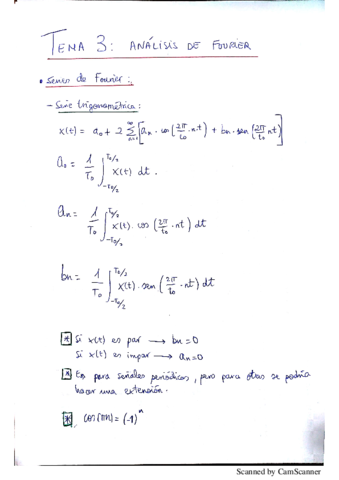 TEMA 3: ANÁLISIS DE FOURIER
• Series de Fourier:
- Serie trigonométrica:
x(t) = a₀ + 2 ∑_{n=1}^{∞} [aₙ · cos(2π/t₀ · nt) + bₙ · sen(2π/t₀ nt)]
a₀ = 1/T₀ ∫_{-T₀/2}^{T₀/2} x(t) dt.
aₙ = 1/T₀ ∫_{-T₀/2}^{T₀/2} x(t) · cos(2π/t₀ · nt) dt
bₙ = 1/T₀ ∫_{-T₀/2}^{T₀/2} x(t) · sen(2π/t₀ · nt) dt
* Si x(t) es par → bₙ = 0
Si x(t) es impar → aₙ = 0
* Es para señales periódicas, pero para otras se podría
hacer una extensión.
* cos(πn) = (-1)ⁿ
Scanned by CamScanner